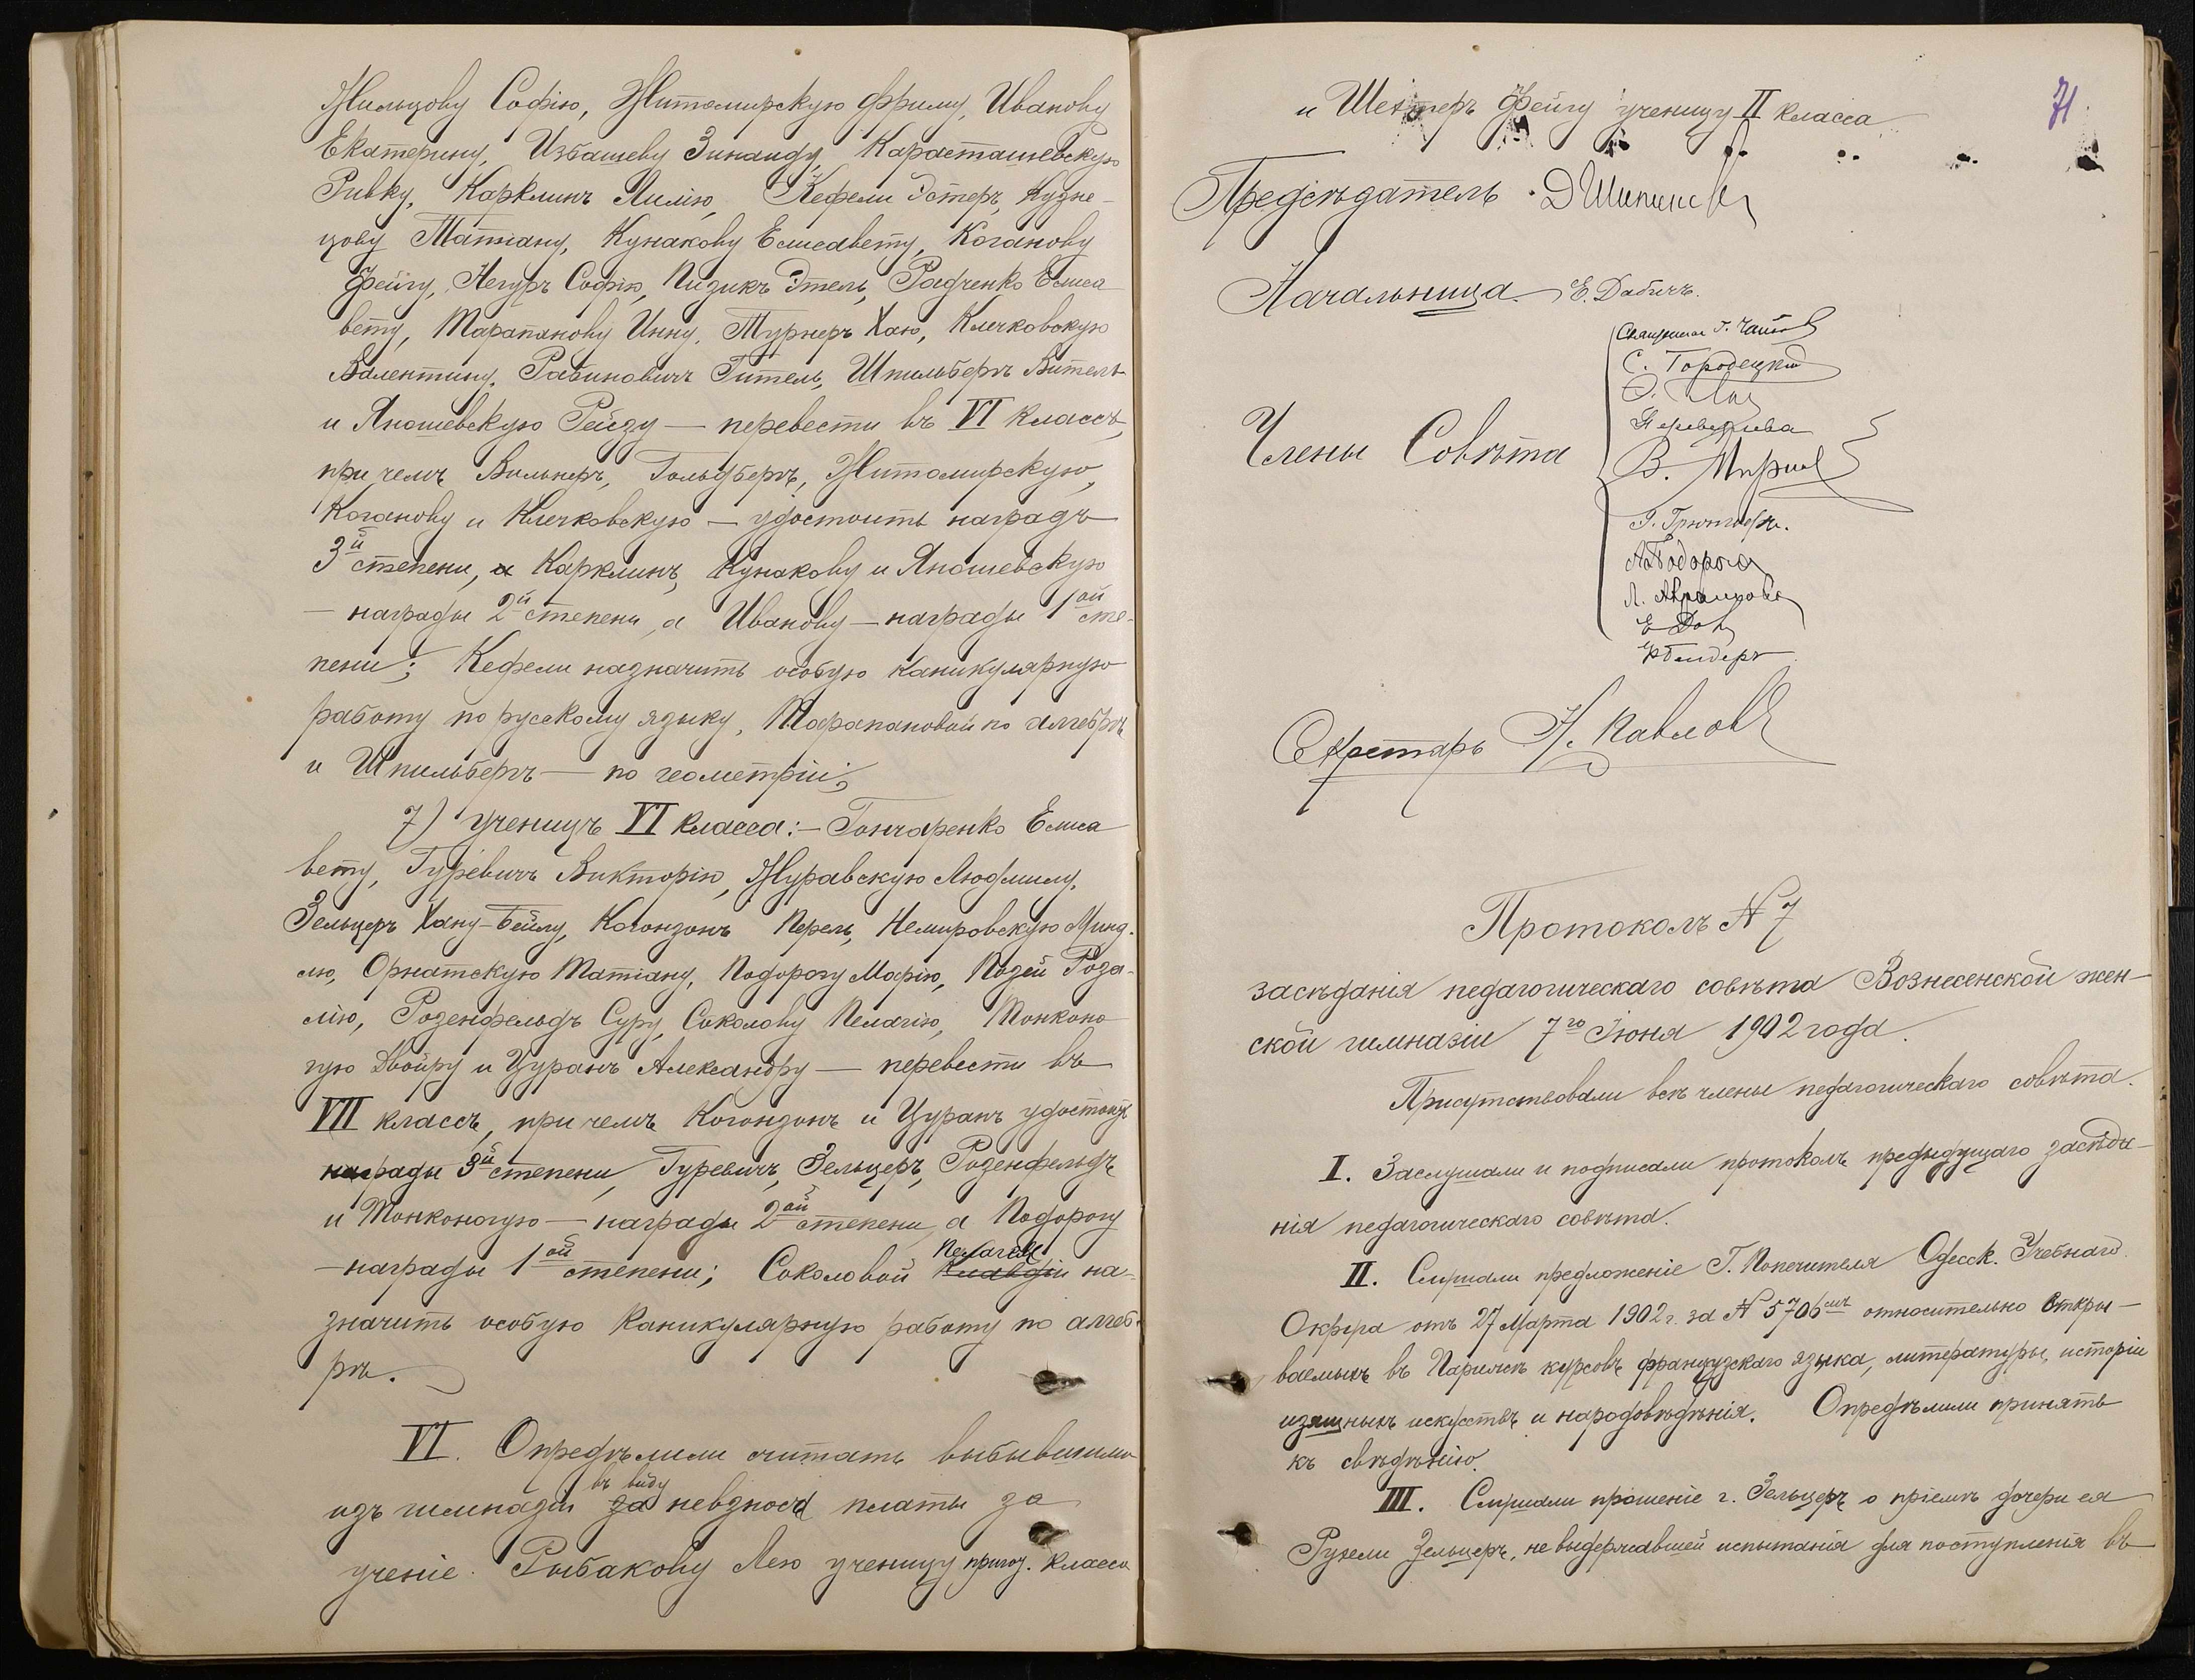 Жильцову Софію, Житомирскую Фриму, Иванову
Екатерину, Избашеву Зинаиду, Карасташевскую
Ривку, Карклинъ Лилію, Кефели Эстеръ, Кузне-
цову Татіану, Кунакову Елисавету, Коганову
Фейгу, Негуръ Софію, Пизикъ Этель, Радченко Елиса
вету, Тарапанову Инну, Турнеръ Хаю, Клечковскую
Валентину, Рабиновичъ Гитель, Шпильбергъ Витель
и Яношевскую Рейзу — перевести въ VI классъ,
при чемъ Вильнеръ, Гольдбергъ, Житомирскую,
Коганову и Клечковскую — удостоить наградъ
3й степени, а Карклинъ, Кунакову и Яношевскую
— награды 2й степени, а Иванову — награды 1ой сте-
пени; Кефели назначить особую каникулярную
работу по русскому языку, Тарапановой по алгебрѣ
и Шпильбергъ — по геометріи;
7) ученицъ VI класса: — Гончаренко Елиса
вету, Гуревичъ Викторію, Журавскую Людмилу,
Зельцеръ Хану-Бейлу, Когонзонъ Перель, Немировскую Минд-
лю, Орнатскую Татіану, Подорогу Марію, Подей Роза-
лію, Розенфельдъ Суру, Соколову Пелагію, Тонконо
гую Двойру и Цуранъ Александру — перевести въ
VII классъ, при чемъ Когонзонъ и Цуранъ удостоить
награды 3й степени, Гуревичъ, Зельцеръ, Розенфельдъ
и Тонконогую — награды 2ой степени, а Подорогу
— награды 1ой степени; Соколовой Пелагіи Клавдіи на-
значить особую каникулярную работу по алгеб-
рѣ.
VI. Опредѣлили считать выбывшими
изъ гимназіи въ виду за невзноса платы за
ученіе Рыбакову Лею ученицу пригот. класса
71
и Шехтеръ Фейгу ученицу II класса
Предсѣдатель
Начальница Е. Дабичъ.
Члены Совѣта
Священникъ Г.
С. Городецкій
В.
Г.
А. Подорога
Л.
Е.
Секретарь Н. Павловъ
Протоколъ N 7
засѣданія педагогическаго совѣта Вознесенской жен-
ской гимназіи 7го Іюня 1902 года.
Присутствовали всѣ члены педагогическаго совѣта.
I. Заслушали и подписали протоколъ предыдущаго засѣда-
нія педагогическаго совѣта.
II. Слушали предложеніе Г. Попечителя Одесск. Учебнаго
Округа отъ 27 Марта 1902 г. за N 5706 относительно откры-
ваемыхъ въ Парижѣ курсовъ французскаго языка, литературы, исторіи
изящныхъ искусствъ и народовѣдѣнія. Опредѣлили принять
къ свѣдѣнію.
III. Слушали прошеніе г. Зельцеръ о пріемѣ дочери ея
Рухели Зельцеръ, не выдержавшей испытанія для поступленія въ